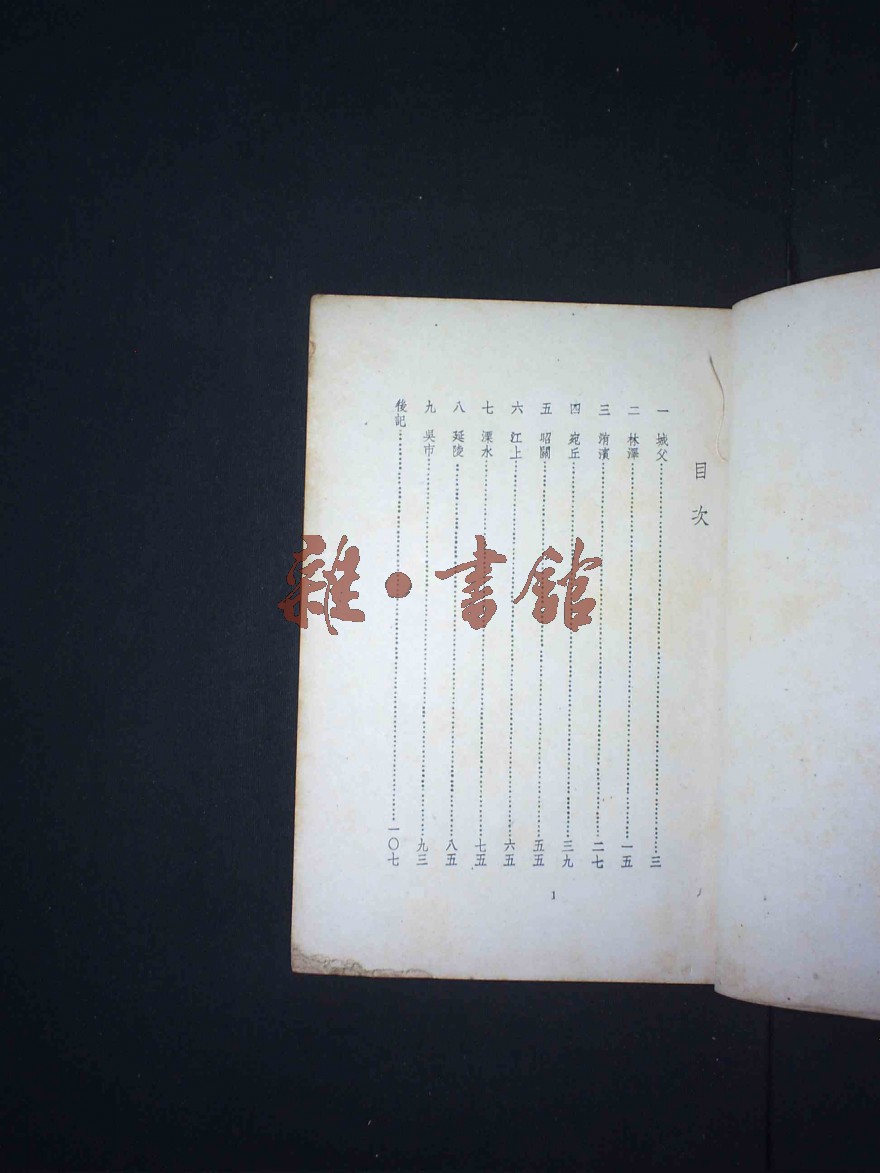 目次
一 城父…………三
二 林澤…………一五
三 洧濱…………二七
四 宛丘…………三九
五 昭關…………五五
六 江上…………六五
七 溧水…………七五
八 延陵…………八五
九 吳市…………九三
後記…………一〇七
1
雜·書館